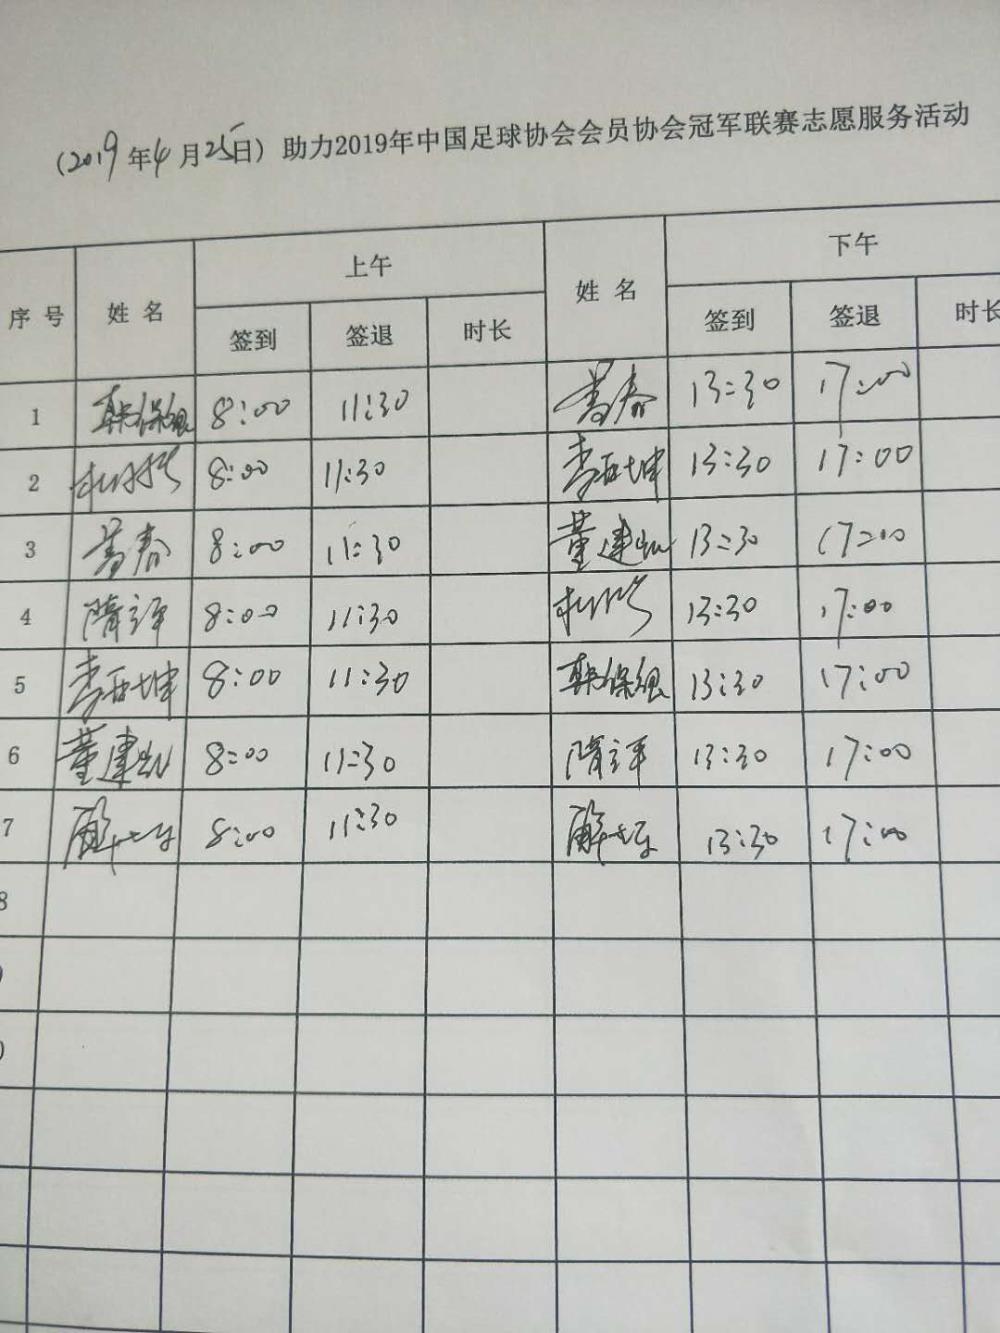 (2019年4月25日) 助力2019年中国足球协会会员协会冠军联赛志愿服务活动
序号 姓名 上午 姓名 下午
签到 签退 时长 签到 签退 时长
1 8:00 11:30 13:30 17:00
2 8:00 11:30 李西坤 13:30 17:00
3 8:00 11:30 董建凯 13:30 17:00
4 8:00 11:30 13:30 17:00
5 李西坤 8:00 11:30 13:30 17:00
6 董建凯 8:00 11:30 13:30 17:00
7 8:00 11:30 13:30 17:00
8